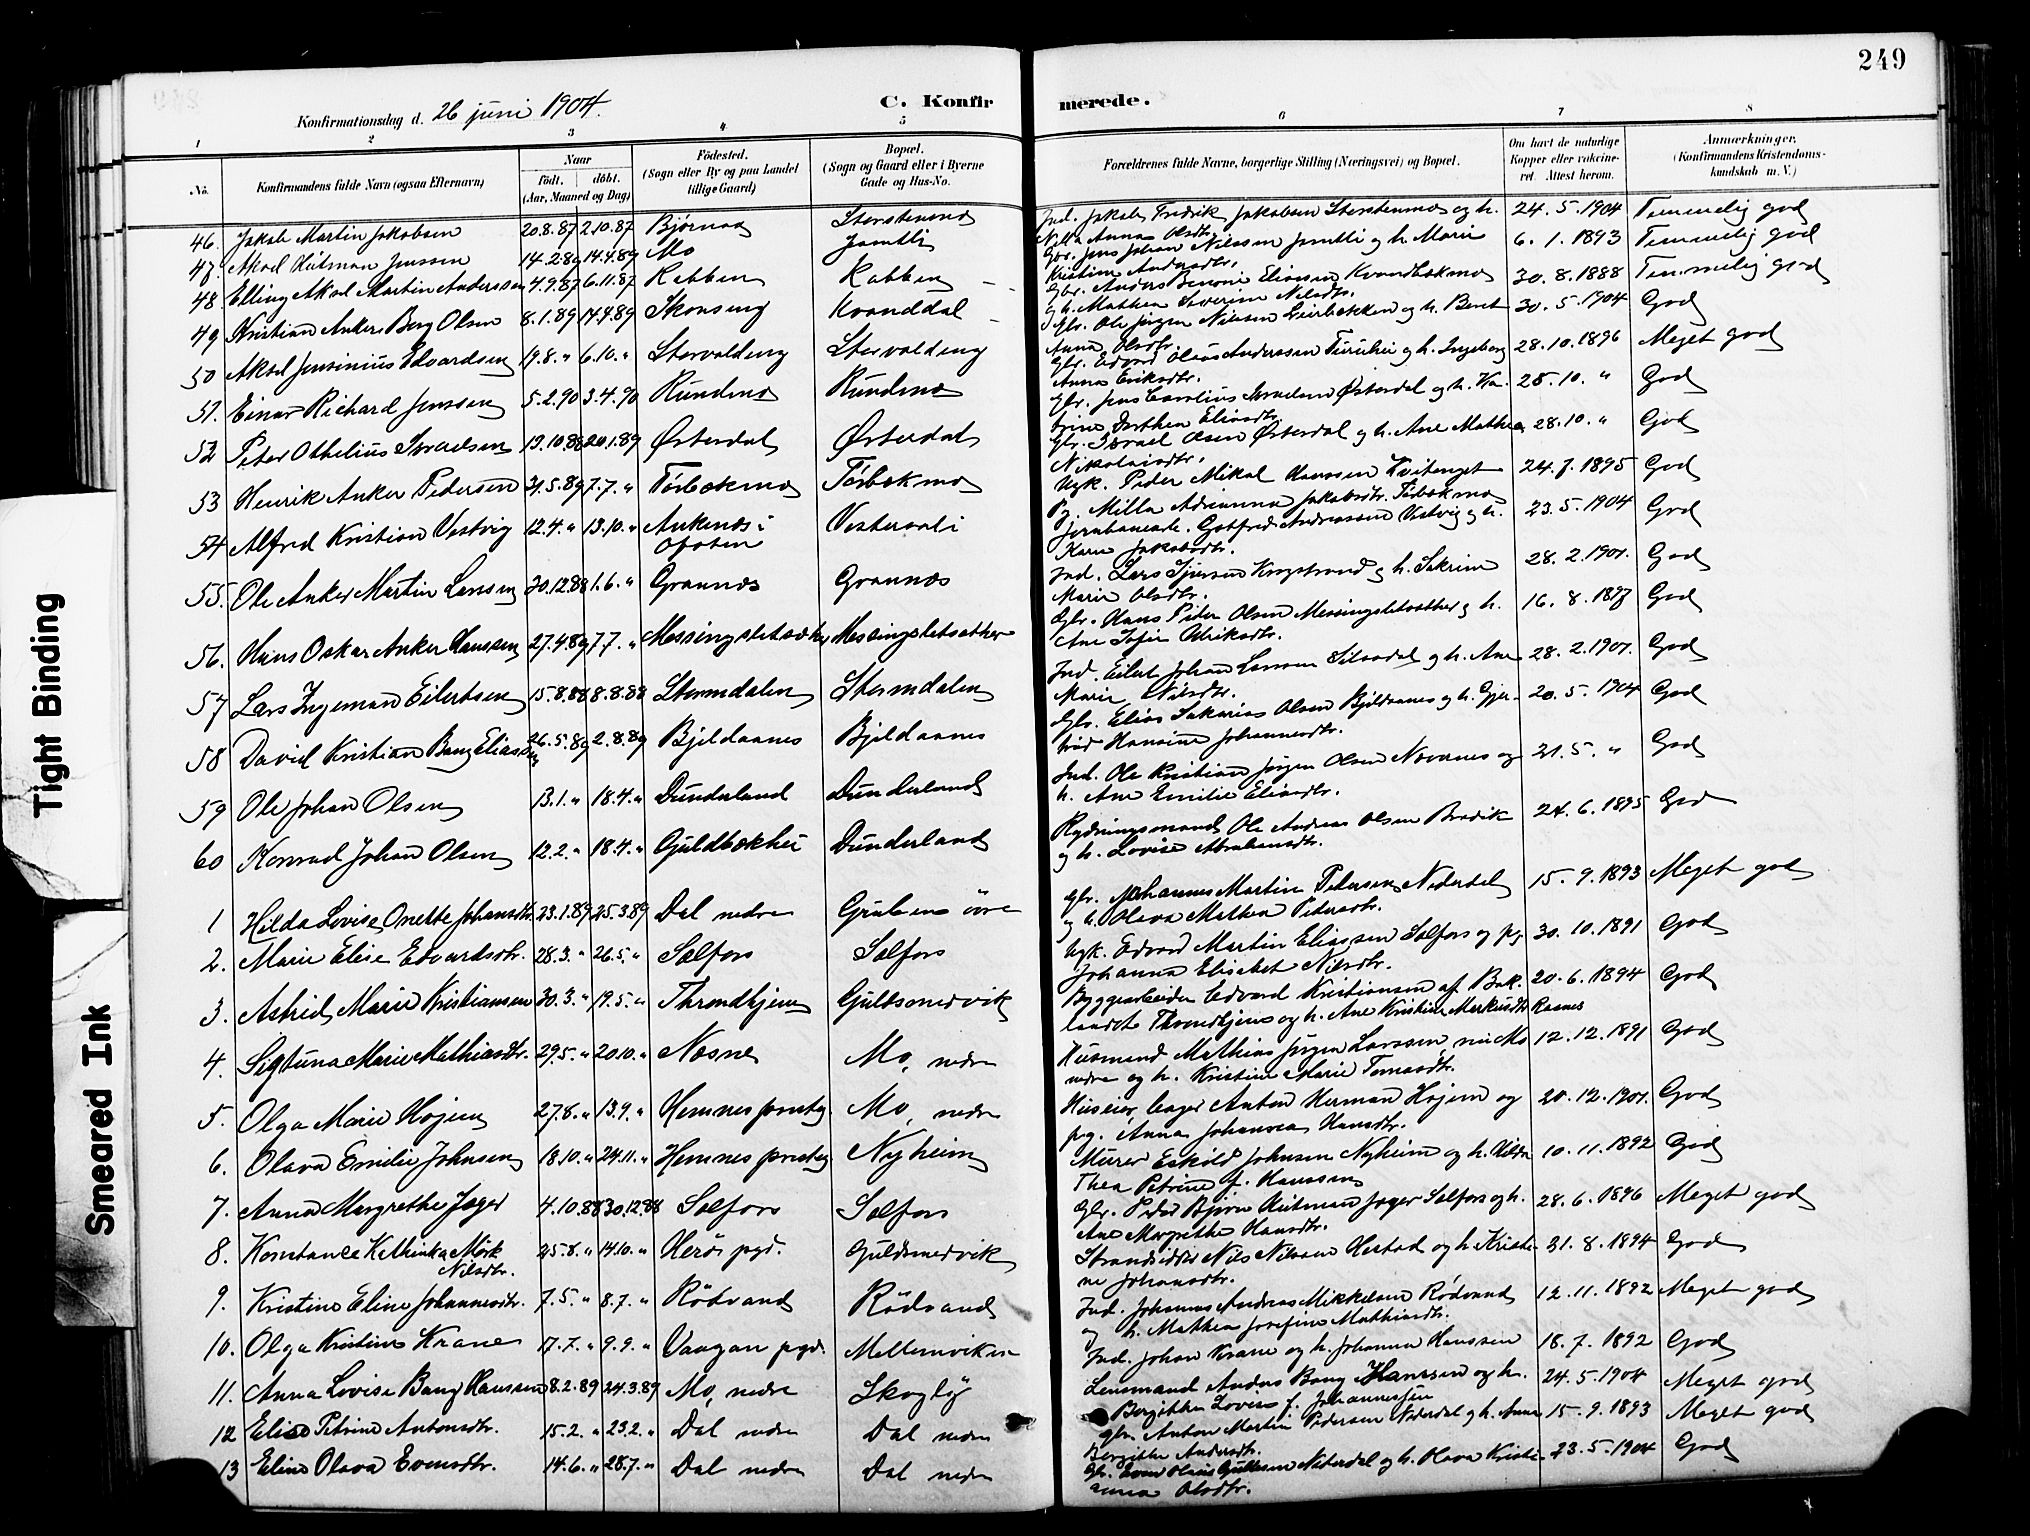 249
Konfirmationsdag d. 26 juni 1904.
C. Konfirmerede.
1 2 3 4 5 6 7 8
No.
Konfirmandens fulde Navn (ogsaa Efternavn)
Naar
født. døbt.
(Aar, Maaned og Dag)
Fødested.
(Sogn eller By og paa Landet
tillige Gaard)
Bopæl.
(Sogn og Gaard eller i Byerne
Gade og Hus-No.
Forældrenes fulde Navne, borgerlige Stilling (Næringsvei) og Bopæl.
Om havt de naturlige
Kopper eller vaccine-
ret. Attest herom.
Anmærkninger.
(Konfirmandens Kristendoms-
kundskab m. V.)
46. Jakob Martin Jakobsen 20.8.87 2.10.87 Bjørnaa Storstenmo Ind. Jakob Fredrik Jakobsen Storstenmo og h. 24.5.1904 Temmelig god
Anna Olsdtr.
47. Aksel Hitman Jenssen 14.2.89 14.4.89 Mo Jamtli Gbr. Jens Johan Nilssen Jamtli og h. Marie 6.1.1893 Temmelig god
Kristine Andersdtr.
48. Elling Aksel Martin Anderssen 4.9.87 6.11.87 Rabben Rabben Gbr. Anders Benoni Eliassen 30.8.1888 Temmelig god
og h. Mathea Severine Nilsdtr.
49 Kristian Anker Berg Olsen 8.1.89 14.4.89 Skonseng Kvanddal Gbr. Ole Jørgen Nilssen Leirbækken og h. Berit 30.5.1904 God
Anna Olsdtr.
50 Aksel Jensinius Edvardsen 19.8. " 6.10. " Storvoldeng Storvoldeng Gbr. Edvard Olaus Anderssen og h. Ingeborg 28.10.1896 Meget god
Anna Eriksdtr.
51. Einar Richard Jenssen 5.2.90 3.4.90 Rundmo Rundmo Gbr. Jens Carolius Israelsen Østerdal og h. Ka- 28.10. " God
trine Dorthea Eliasdtr.
52 Peter Othelius Israelsen 19.10.88 20.1.89 Østerdal Østerdal Gbr. Israel Olsen Østerdal og h. Ane Mathea 28.10. " God
Nikolaisdtr.
53 Henrik Anker Pedersen 31.5.89 7.7. " Tørbækmo Tørbækmo Ugk. Peder Mikal Hanssen 24.7.1895 God
Pg. Milla Adrianna Jakobsdtr. Tørbækmo
54 Alfred Kristian Vestvig 12.4. " 13.10. " Ankenes i Vesterali Jernbanearb. Gotfred Andreassen Vestvig og h. 23.5.1904 God
Ofoten
Karen Jakobsdtr.
55. Ole Anker Martin Larssen 30.12.88 1.6. " Grannæs Grannæs Ind. Lars Iversen og h. Sakrine 28.2.1901. God
Marie Olsdtr.
56. Hans Oskar Anker Hanssen 27.4.89 7.7. " Messingsletsæther Messingsletsæther Gbr. Hans Peter Olsen Messingsletsæther og h. 16.8.1897 God
Ane Sofie Ulriksdtr.
57 Lars Ingeman Eilertsen 15.8.88 8.8.88 Stormdalen Stormdalen Ind. Eilert Johan Larssen og h. Ane 28.2.1901. God
Marie Nilsdtr.
58 David Kristian Bang Eliassen 26.5.89 2.8.89 Bjeldaanes Bjeldaanes Gbr. Elias Sakarias Olsen Bjeldaanes og h. Gjer- 20.5.1904 God
trud Hansine Johannesdtr.
59 Ole Johan Olsen 13.1. " 18.4. " Dunderland Dunderland Ind. Ole Kristian Jørgen Olsen Nævernes og 31.5. " God
h. Ane Emilie Eliasdtr.
60 Konrad Johan Olsen 12.2. " 18.4. " Guldbækhei Dunderland Rydningsmand Ole Andreas Olsen Bredik 24.6.1895 God
og h. Lovise Abrahamsdtr.
1 Hilda Lovise Onette Johansdtr. 23.1.89 25.3.89 Dal nedre Gruben øvre Gbr. Johannes Martin Pedersen Nederdal 15.9.1893 Meget god
og h. Olava Mathea Pedersdtr.
2. Marie Elise Edvardsdtr. 28.3. " 26.5. " Selfors Selfors Ugk. Edvard Martin Eliassen Selfors og pg. 30.10.1891 God
Johanna Elisabet Nilsdtr.
3. Astrid Marie Kristiansen 30.3. " 19.5. " Throndhjem Guldsmedvik Byggearbeider Edvard Kristiansen af Bak- 20.6.1894 God
landet Throndhjem og h. Ane Kristine Markusdtr. Ranes
4. Sigtuna Marie Mathiasdtr. 29.5. " 20.10. " Næsne Mo, nedre Husmand Mathias Jørgen Larssen, nu Mo 12.12.1891 God
nedre og h. Kristine Marie Tomasdtr.
5. Olga Marie Højem 27.6. " 13.9. " Hemnes presteg. Mo, nedre Huseier, bager Anton Herman Højem og 20.12.1901. God
pg. Anna Johanna Hansdtr.
6. Olava Emilie Johnsen 18.10. " 24.11. " Hemnes presteg Nyheim Murer Eskild Johnsen Nyheim og h. Hilda 10.11.1892 God
Thea Petrine f. Hanssen
7. Anna Margrethe Jæger 4.10.88 30.12.88 Selfors Selfors Gbr. Peder Bjørn Hitman Jæger Selfors og h. 28.6.1896 Meget god
Ane Margrethe Hansdtr.
8. Konstance Kathinka Mörk 25.8. " 14.10. " Herø pgd. Guldsmedvik Strandsidder Nils Nilssen Herstad og h. Kristi- 31.8.1894 God
Nilsdtr.
ne Johansdtr.
9. Kristine Eline Johannesdtr. 7.5. " 8.7. " Rödvand Rödvand Ind. Johannes Andreas Mikkelsen Rödvand 12.11.1892 Meget god
og h. Mathea Josefine Mathiasdtr.
10. Olga Kristine Krane 17.7. " 9.9. " Vaagan pgd. Mellemviken Ind. Johan Krane og h. Johanna Hanssen 18.7.1892 God
11. Anna Lovise Bang Hanssen 8.2.89 24.3.89 Mo, nedre Skoglÿ Lensmand Anders Bang Hanssen og h. 24.5.1904 Meget god
Bergitha Lovise f. Johannessen
12 Elise Petrine Antonsdtr. 15.2. " 23.2. " Dal nedre Dal nedre Gbr. Anton Martin Pedersen Nederdal og h. Anne 15.9.1893 Meget god
Bergitha Andersdtr.
13 Eline Olava Evensdtr. 14.6. " 28.7. " Dal nedre Dal nedre Gbr. Even Olaus Nederdal og h. Olava Kristi- 23.5.1904 God
anna Olsdtr.
Tight Binding
Smeared Ink